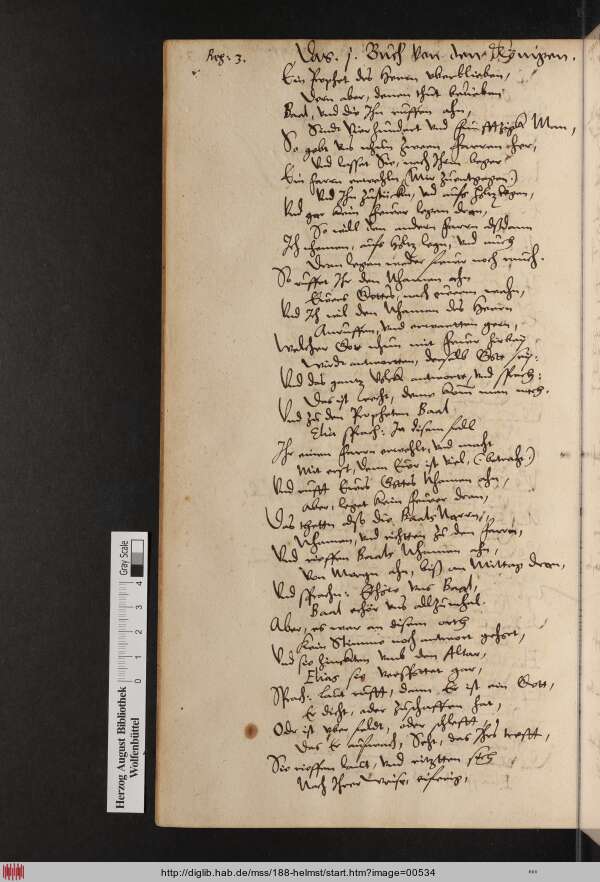 Reg: 3.
Das. 1. Buch von den Königen.
Ein Prophet des Herrn uberblieben,
Dorn aber, denen thut belieben
Baal, und die Ihn ruffen ahn,
Sindt Vier hundert und funfftzigk Man,
So gebt uns nhun zween farren her,
Und lasset Sie, nach Ihrm beger
Ein farrn erwehln (Mir zuentgegen)
Und Ihn zustückn, und aufs Holtz legen,
Und gar kein feuer legen dran,
So will den andern farrn alßdann
Ich nhemen, aufs Holtz legn, und auch
Dran legen weder feuer noch rauch.
So ruffet Ihr den Nhamen ahn
Eurs Gottes, nach eurem wahn,
Und Ich wil den Nhamen des Herrn
Anruffen, und erwartten gern,
Welcher Gott nhun mit feuer
Wirdt antwortten, derselb Gott sey:
Und das gantz Volck antwort, und sprach:
Das ist recht, deme kom man nach.
Und zu den Propheten Baal
Elia sprach: In disem fall
Ihr einen farrn erwehlt, und macht
Mit erst, denn Eur ist viel, (betracht)
Und rufft Eurs Gottes Nhamen ahn,
Aber, leget kein feuer dran,
Das thetten alß die Baals Narrn,
Nhamen, und richtten zu den farrn,
Und rieffen Baals Nhamen ahn,
Von Morgn ahn, biß an Mittag dran,
Und sprachn: Erhöre uns Baal,
Baal erhör uns allzumhal.
Aber, es war an disem orth
Kein Stimme noch antwort gehort,
Und sie hinckten umb den Altar,
Elias sie verspottet gar,
Sprach: laut rufft, dann Er ist ein Gott,
Er dicht, oder zuschaffen hat,
Odr ist uber feldt, oder schlefft
Das Er aufwach, Seht, das Ihrs trefft,
Sie rieffen laut, und ritztten sich
Nach Ihrer weise, eiferig,
Herzog August Bibliothek
Wolfenbüttel
0 1 2 3 4
Gray Scale
http://diglib.hab.de/mss/188-helmst/start.htm?image=00534